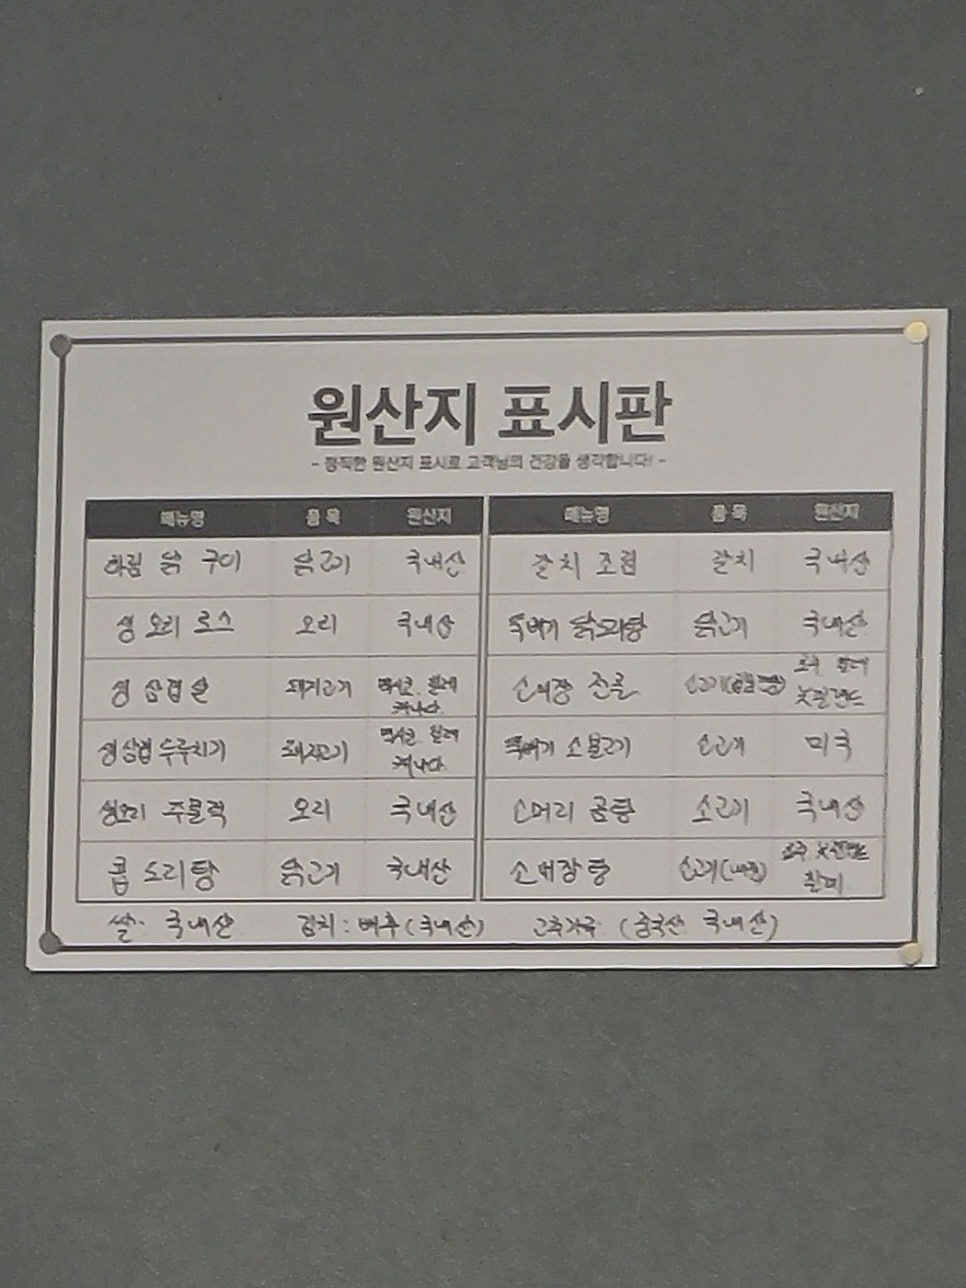 원산지 표시판
- 정직한 원산지 표시로 고객님의 건강을 생각합니다! -
메뉴명 품 목 원산지 메뉴명 품 목 원산지
하림 닭 구이 닭고기 국내산 갈치 조림 갈치 국내산
생 오리 로스 오리 국내산 뚝배기 닭도리탕 닭고기 국내산
생 삼겹살 돼지고기 멕시코 칠레 캐나다 소내장 전골 소고기 호주 칠레 뉴질랜드
생삼겹 두루치기 돼지고기 멕시코 칠레 캐나다 뚝배기 소불고기 소고기 미국
생오리 주물럭 오리 국내산 소머리 곰탕 소고기 국내산
통 도리탕 닭고기 국내산 소내장탕 소고기(내장) 호주 뉴질랜드 칠레
쌀: 국내산 김치: 배추(국내산) 고추가루 (중국산 국내산)